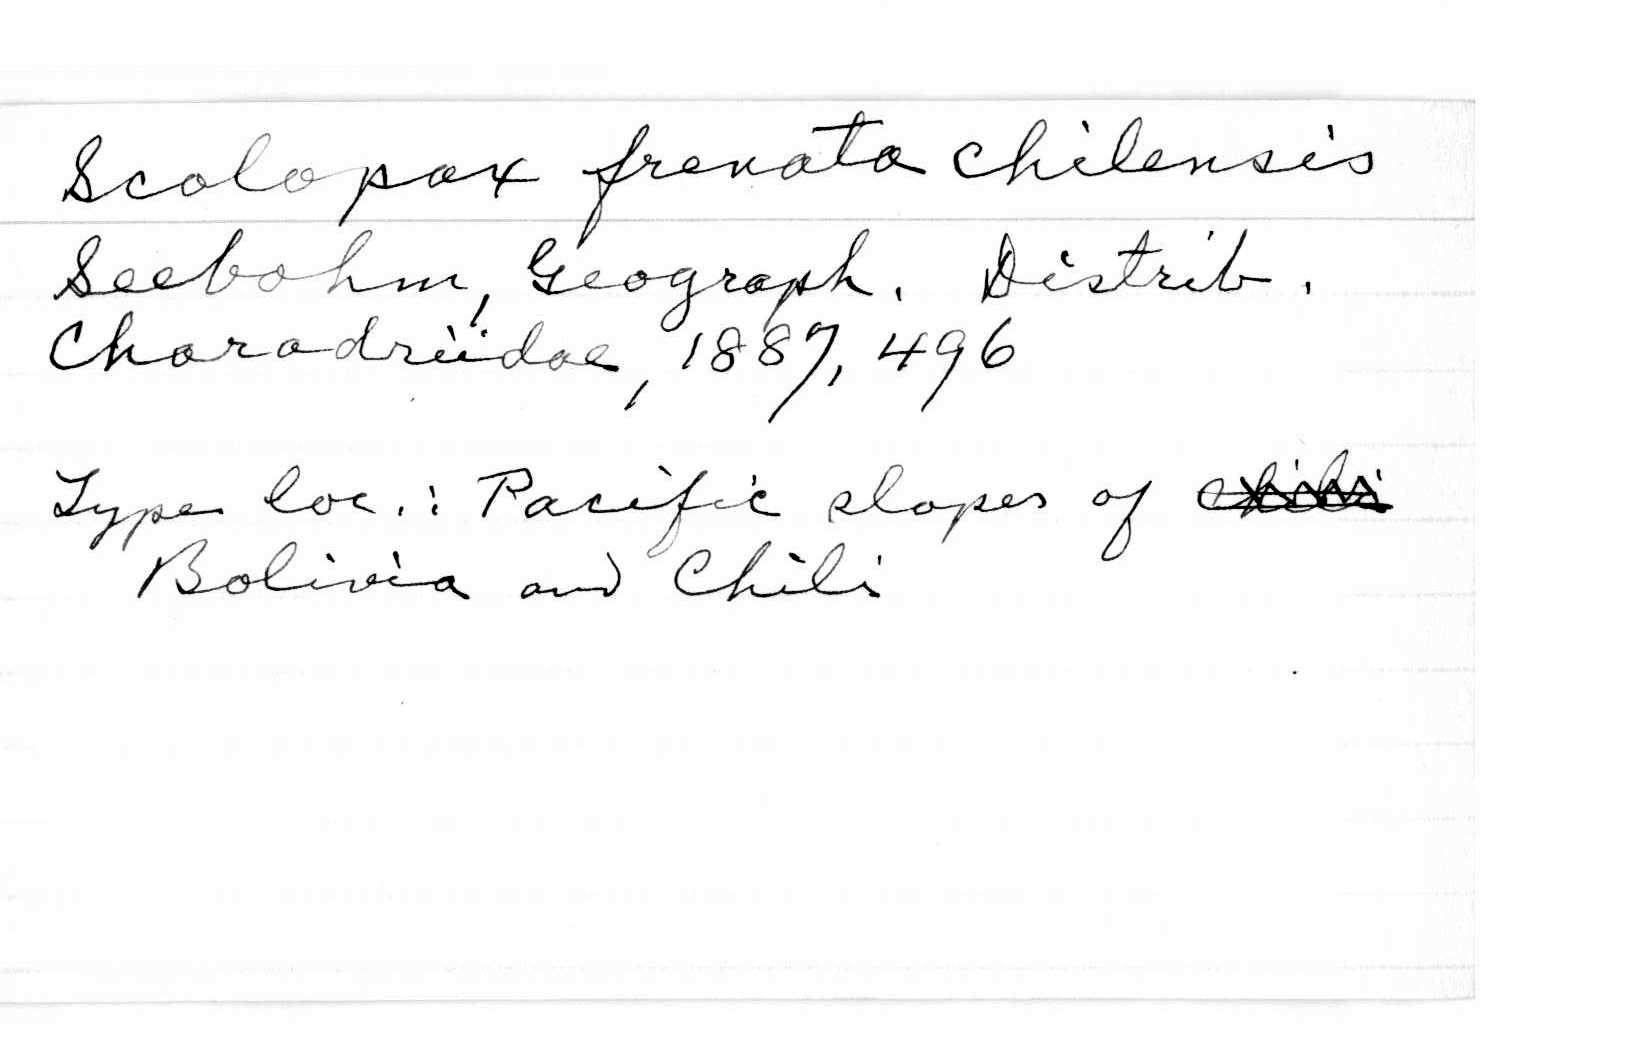 Scolopax frenata chilensis
Seebohm, Geograph. Distrib.
Charadriidae, 1887, 496
Type loc.: Pacific slopes of Chili
Bolivia and Chili